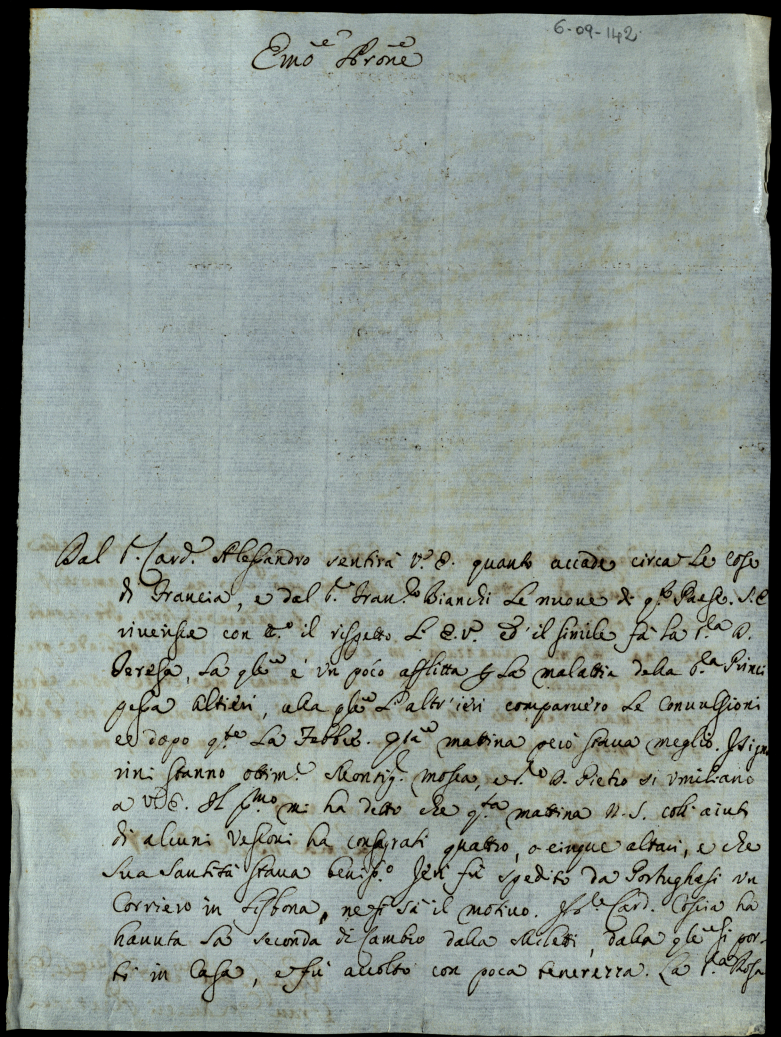 6-09-142
Emo͞e Prone
Dal S.r Card.e Alessandro sentirà V.a E. quanto accade circa le cose
di Francia, e dal S.r Fran.co Bianchi le nuove di q.to Paese. S. E
riverisce con il rispetto L' E. V.a ed' il simile fà la S.ra D.
Teresa, la q.le è un poco afflitta p la malattia della S.ra Princi
pessa Altieri, alla q.le L'altr'ieri comparvero le Convulsioni
e dopo q.te La Febbre. q.ta mattina però stava meglio. I Signo
rini stanno ottim.e Monsig.r Mosca, e D. Pietro si umiliano
a V.E. Il p.mo mi ha detto che q.ta mattina N. S. coll' aiuti
di alcuni Vescovi ha consagrati quattro, o cinque altari, e che
Sua Santità stava beniss.o Jeri fù spedito da Portughesi un
Corriero in Lisbona, ne si sà il motivo. Il S.r Card. Coscia ha
havuta la seconda di Cambio dalla Meletti, dalla q.le si por-
tò in Casa, e fù accolto con poca tenerezza. La S.ra Rosa